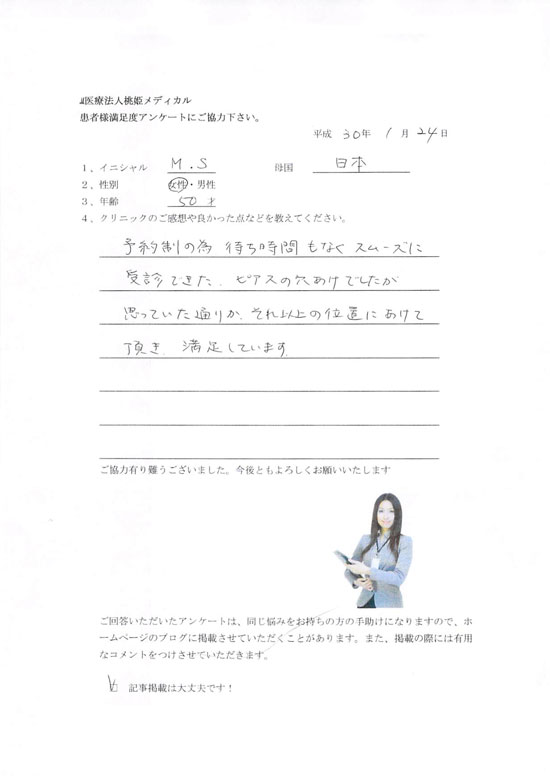 医療法人桃姫メディカル
患者様満足度アンケートにご協力下さい。
平成 30年 1月 24日
1、イニシャル M.S 母国 日本
2、性別 女性・男性
3、年齢 50才
4、クリニックのご感想や良かった点などを教えてください。
予約制の為 待ち時間もなくスムーズに
受診できた、ピアスの穴あけでしたが
思っていた通りか、それ以上の位置にあけて
頂き、満足しています。
ご協力有り難うございました。今後ともよろしくお願いいたします
ご回答いただいたアンケートは、同じ悩みをお持ちの方の手助けになりますので、ホ
ームページのブログに掲載させていただくことがあります。また、掲載の際には有用
なコメントをつけさせていただきます。
記事掲載は大丈夫です！